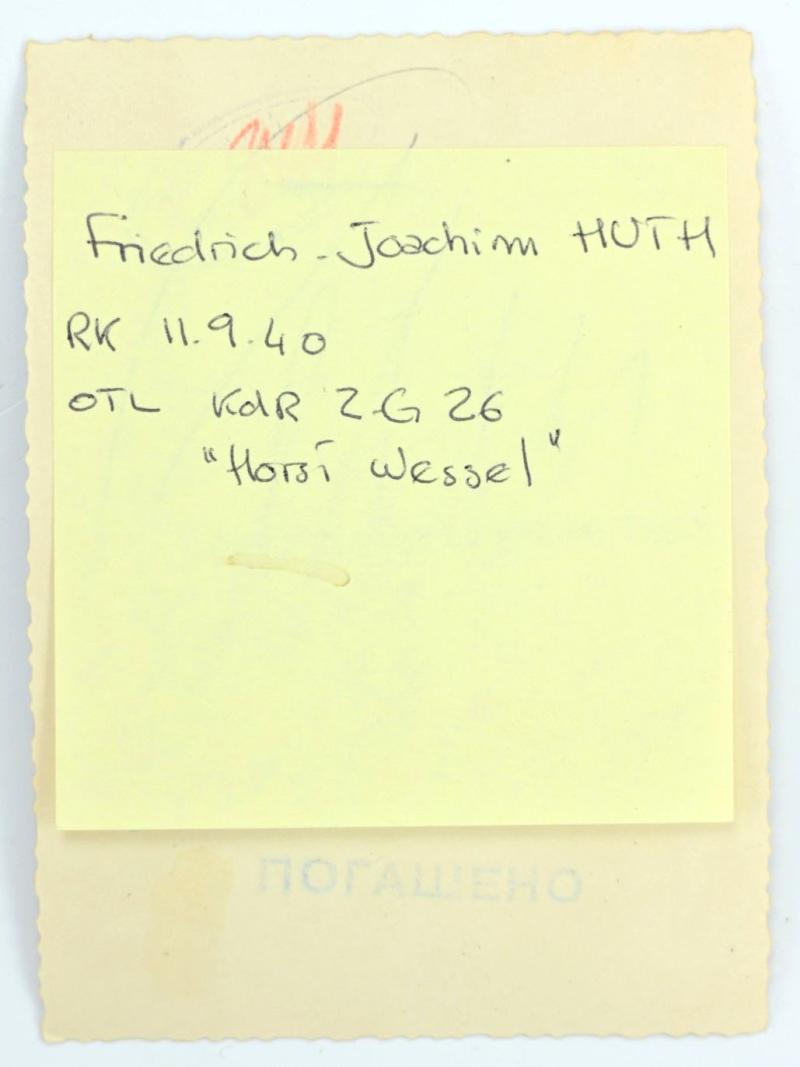 Friedrich-Joachim HUTH
RK 11.9.40
OTL KdR ZG 26
"Horst Wessel"
ПОГАШЕНО